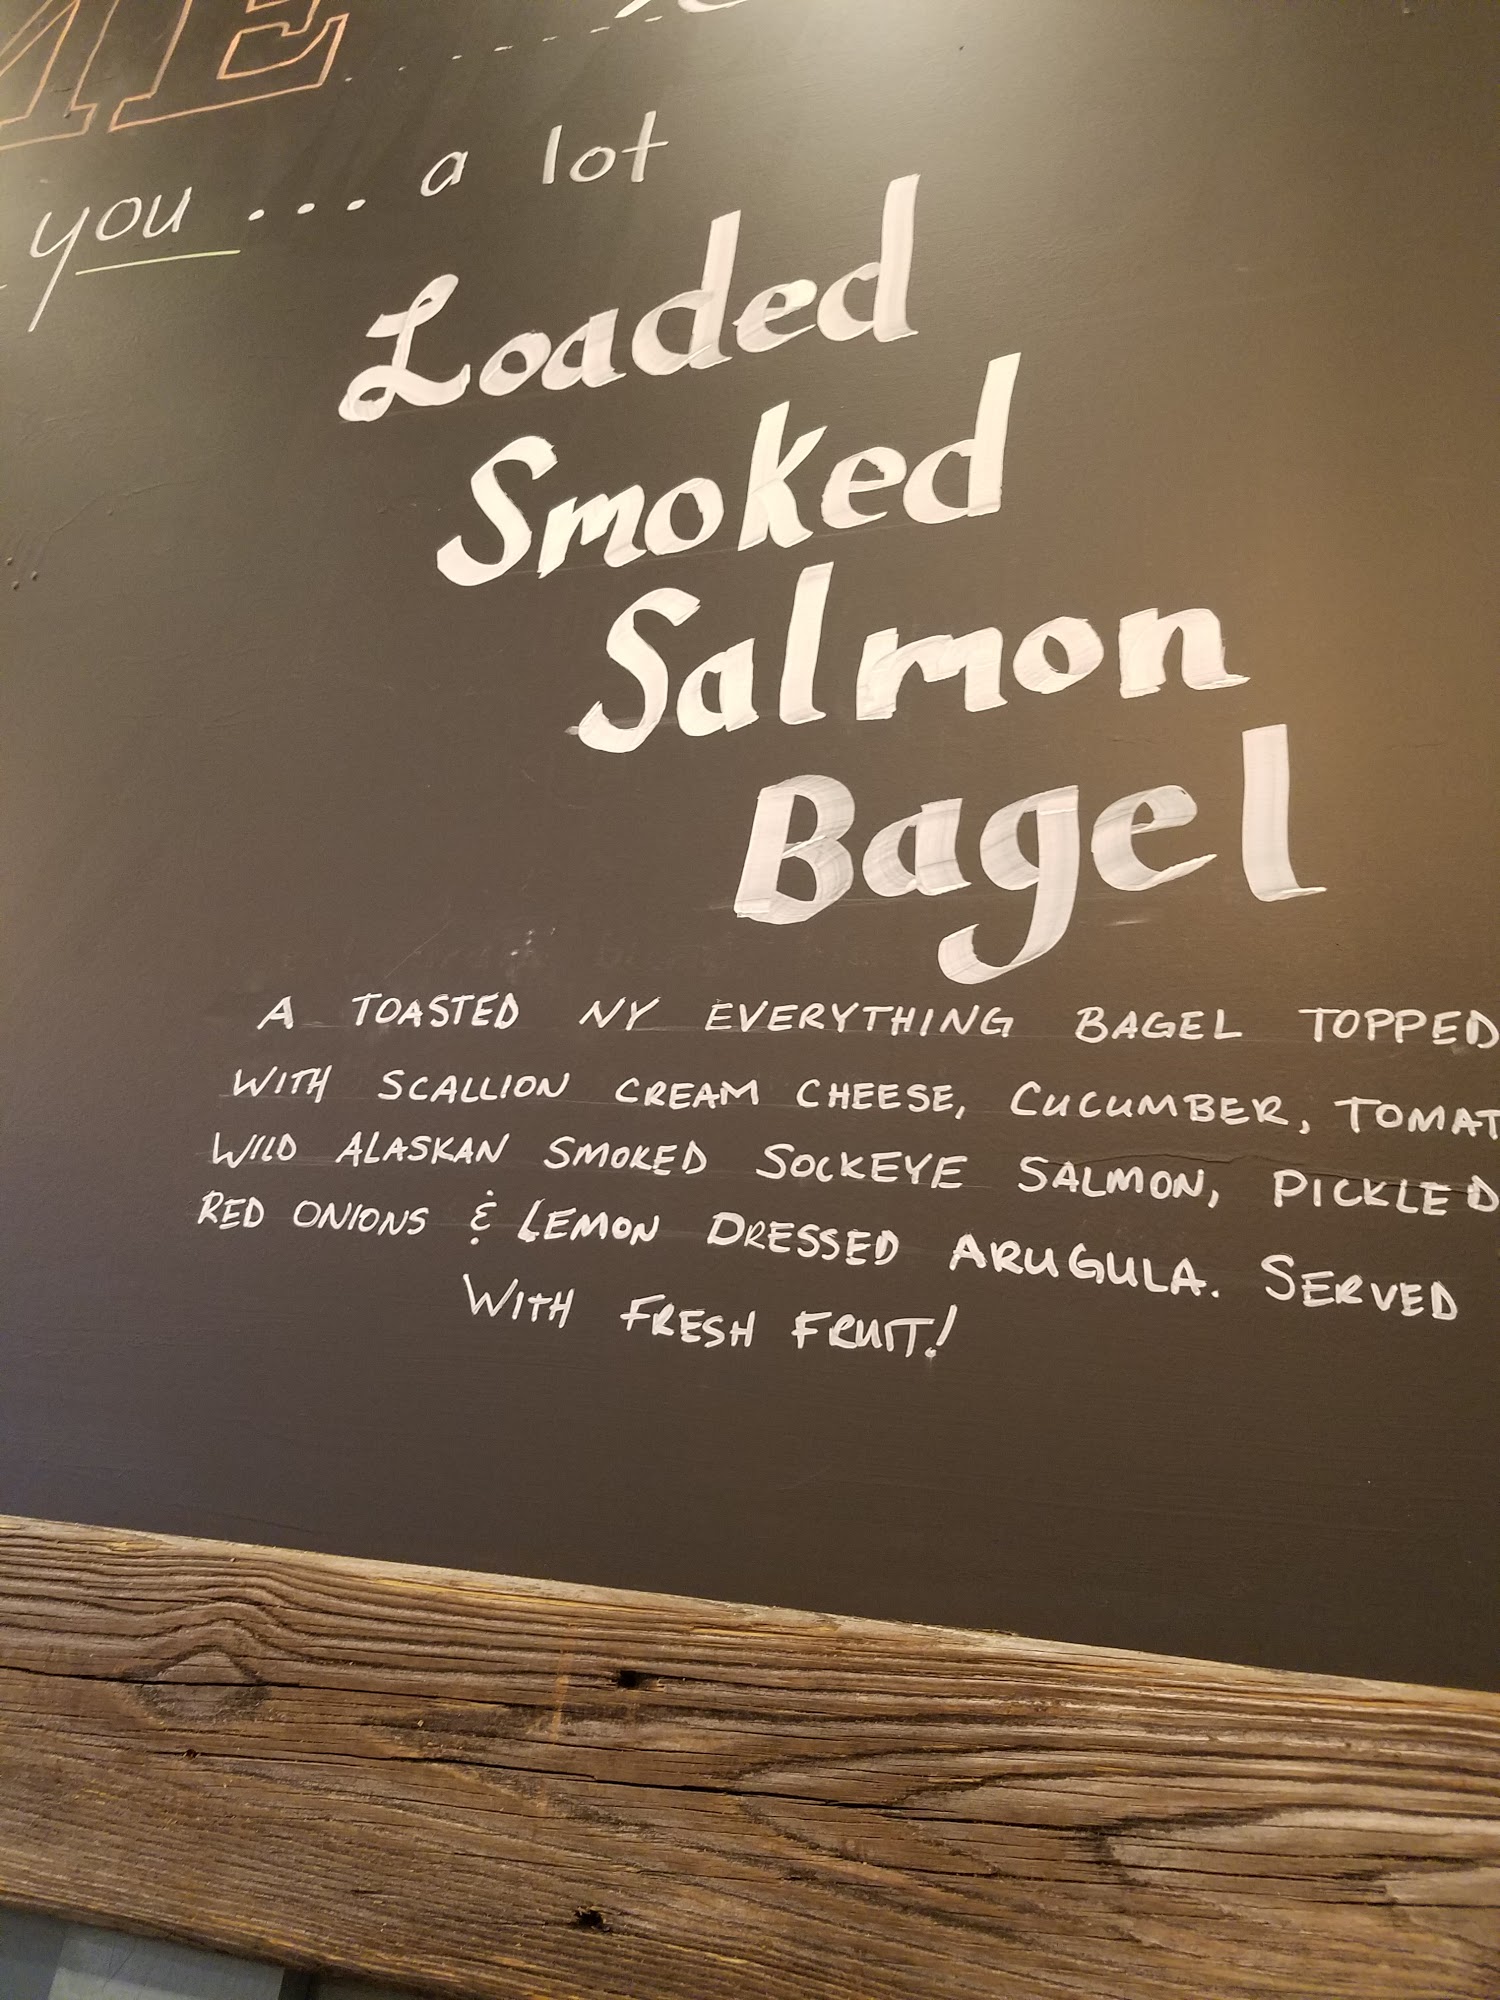 ME
you ... a lot
Loaded
Smoked
Salmon
Bagel
A TOASTED NY EVERYTHING BAGEL TOPPED
WITH SCALLION CREAM CHEESE, CUCUMBER, TOMAT
WILD ALASKAN SMOKED SOCKEYE SALMON, PICKLED
RED ONIONS & LEMON DRESSED ARUGULA. SERVED
WITH FRESH FRUIT!